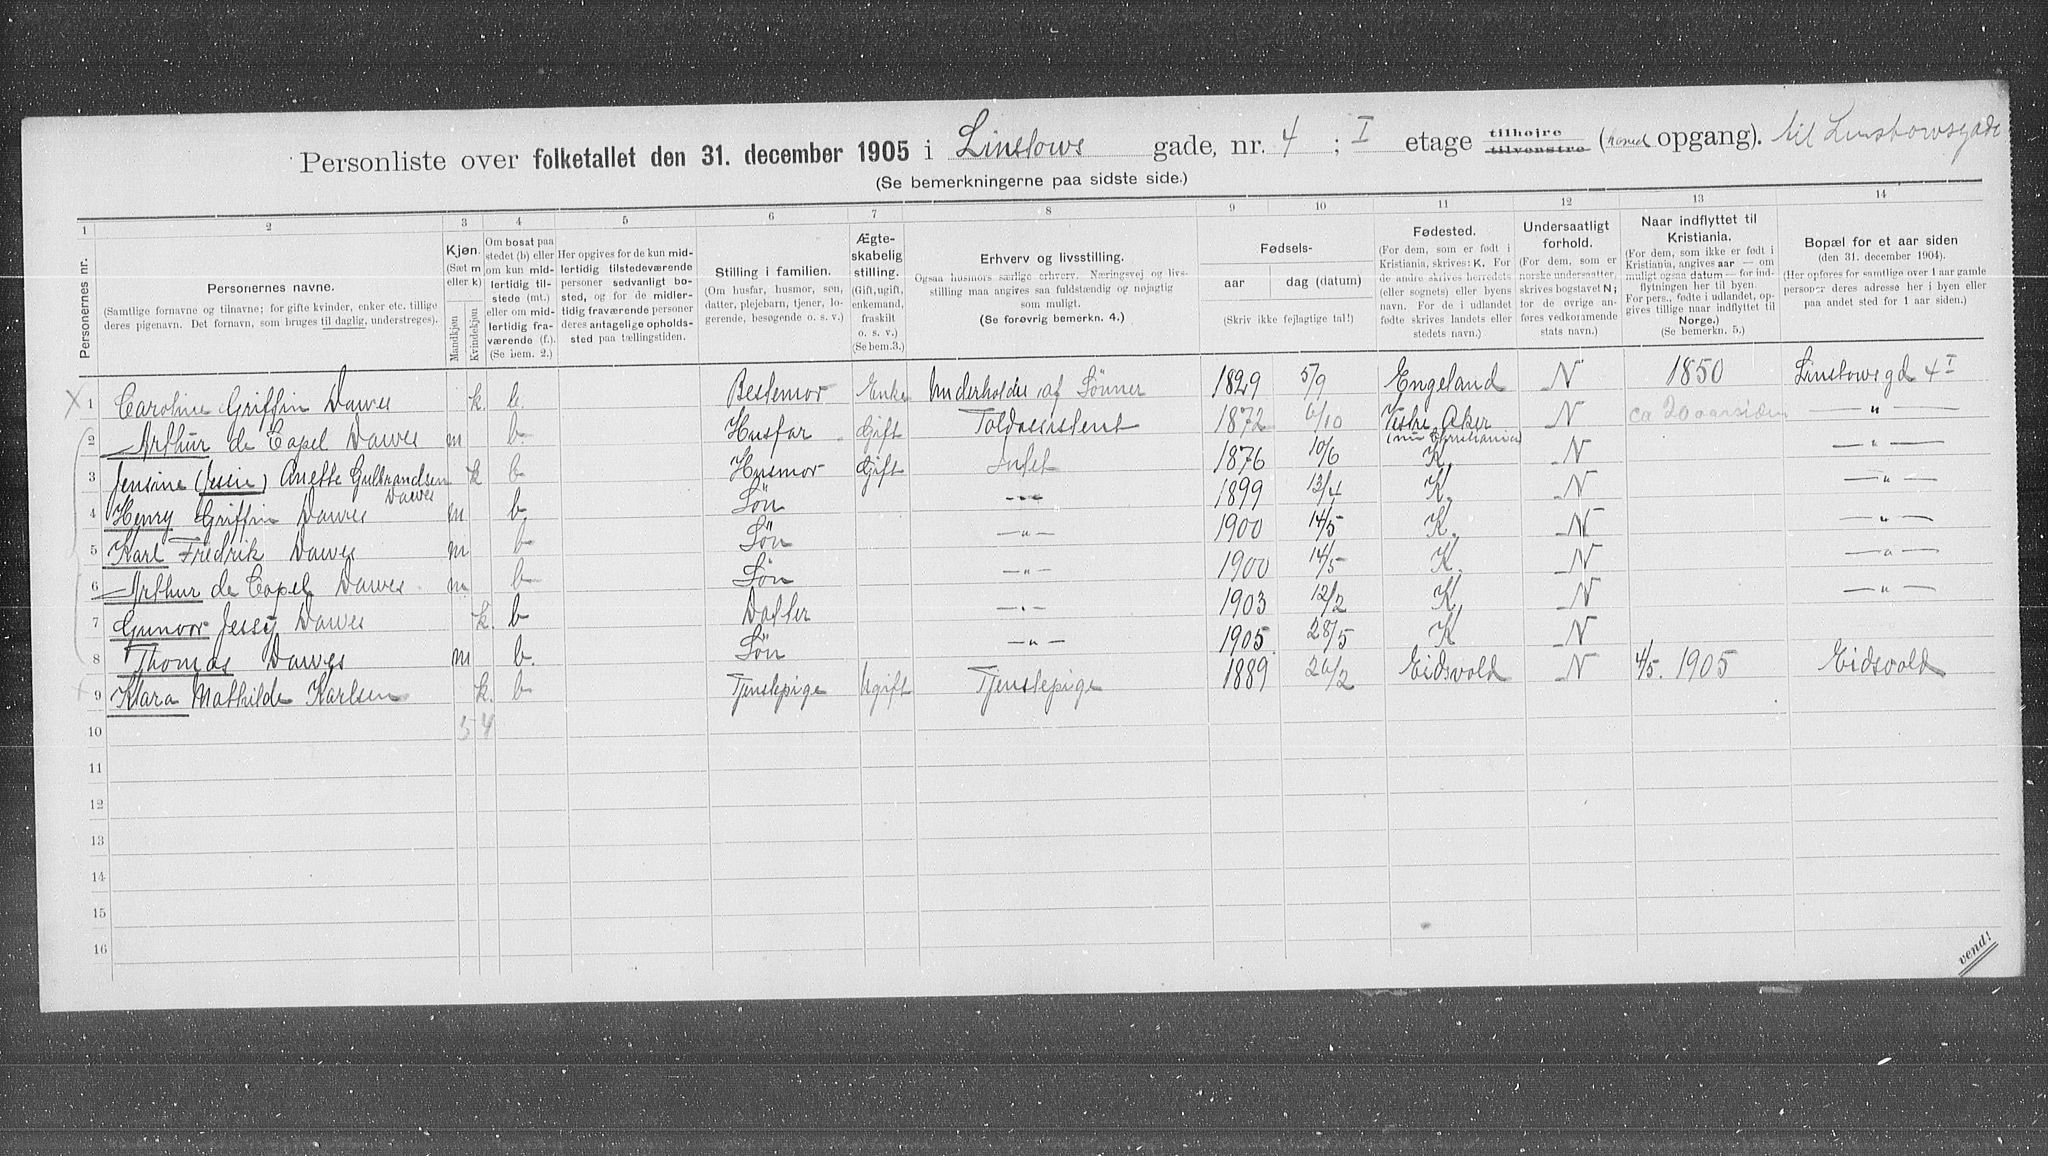 Personliste over folketallet den 31. december 1905 i Linstows gade, nr. 4 ; I etage tilhøjre tilvenstre (hoved opgang). til Linstowsgade
(Se bemerkningerne paa sidste side.)
1 2 3 4 5 6 7 8 9 10 11 12 13 14
Personernes nr.
Personernes navne.
(Samtlige fornavne og tilnavne; for gifte kvinder, enker etc. tillige
deres pigenavn. Det fornavn, som bruges til daglig, understreges).
Kjøn.
(Sæt m
eller k)
Mandkjøn
Kvindekjøn
Om bosat paa
stedet (b) eller
om kun mid-
lertidig til-
stede (mt.)
eller om mid-
lertidig fra-
værende (f.).
(Se bem. 2.)
Her opgives for de kun mid-
lertidig tilstedeværende
personer sedvanligt bo-
sted, og for de midler-
tidig fraværende personer
deres antagelige opholds-
sted paa tællingstiden.
Stilling i familien.
(Om husfar, husmor, søn,
datter, plejebarn, tjener, lo-
gerende, besøgende o. s. v.)
Ægte-
skabelig
stilling.
(Gift, ugift,
enkemand,
fraskilt
o. s. v.)
(Se bem.3.)
Erhverv og livsstilling.
Ogsaa husmors særlige erhverv. Næringsvej og livs-
stilling maa angives saa fuldstændig og nøjagtig
som muligt.
(Se forøvrig bemerkn. 4.)
Fødsels-
aar dag (datum)
(Skriv ikke fejlagtige tal!)
Fødested.
(For dem, som er født i
Kristiania, skrives: K. For
de andre skrives herredets
(eller sognets) eller byens
navn. For de i udlandet
fødte skrives landets eller
stedets navn.)
Undersaatligt
forhold.
(For dem, som er
norske undersaatter,
skrives bogstavet N;
for de øvrige an-
føres vedkommende
stats navn.)
Naar indflyttet til
Kristiania.
(For dem, som ikke er født i
Kristiania, angives aar — om
muligt ogsaa datum — for ind-
flytningen her til byen.
For pers., fødte i udlandet, op-
gives tillige naar indflyttet til
Norge.)
(Se bemerkn. 5.)
Bopæl for et aar siden
(den 31. december 1904).
(Her opføres for samtlige over 1 aar gamle
personer deres adresse her i byen eller
paa andet sted for 1 aar siden.)
X 1 Caroline Griffin Dawes k. b. Bestemor Enke Underholdes af Sønner 1829 5/9 Engeland N 1850 Linstowsgd 4 I
2 Arthur de Capel Dawes m b. Husfar Gift Toldassistent 1872 6/10 Vestre Aker N ca 20 aar siden — " —
(nu Christiania)
3 Jensine (Jessie) Anette Gulbrandsen k b Husmor Gift Intet 1876 10/6 K. N — " —
Dawes
4 Henry Griffin Dawes m b Søn — " — 1899 13/4 K. N — " —
5 Karl Fredrik Dawes m b Søn — " — 1900 14/5 K. N — " —
6 Arthur de Capel Dawes m b Søn — " — 1900 14/5 K. N — " —
7 Gunvor Jessy Dawes k. b Datter — " — 1903 12/2 K N — " —
8 Thomas Dawes m b. Søn — " — 1905 28/5 K N
9 Klara Mathilde Karlsen k. b Tjenstepige Ugift Tjenstepige 1889 26/2 Eidsvold N 4/5. 1905 Eidsvold
10 5 4
11
12
13
14
15
16
vend!